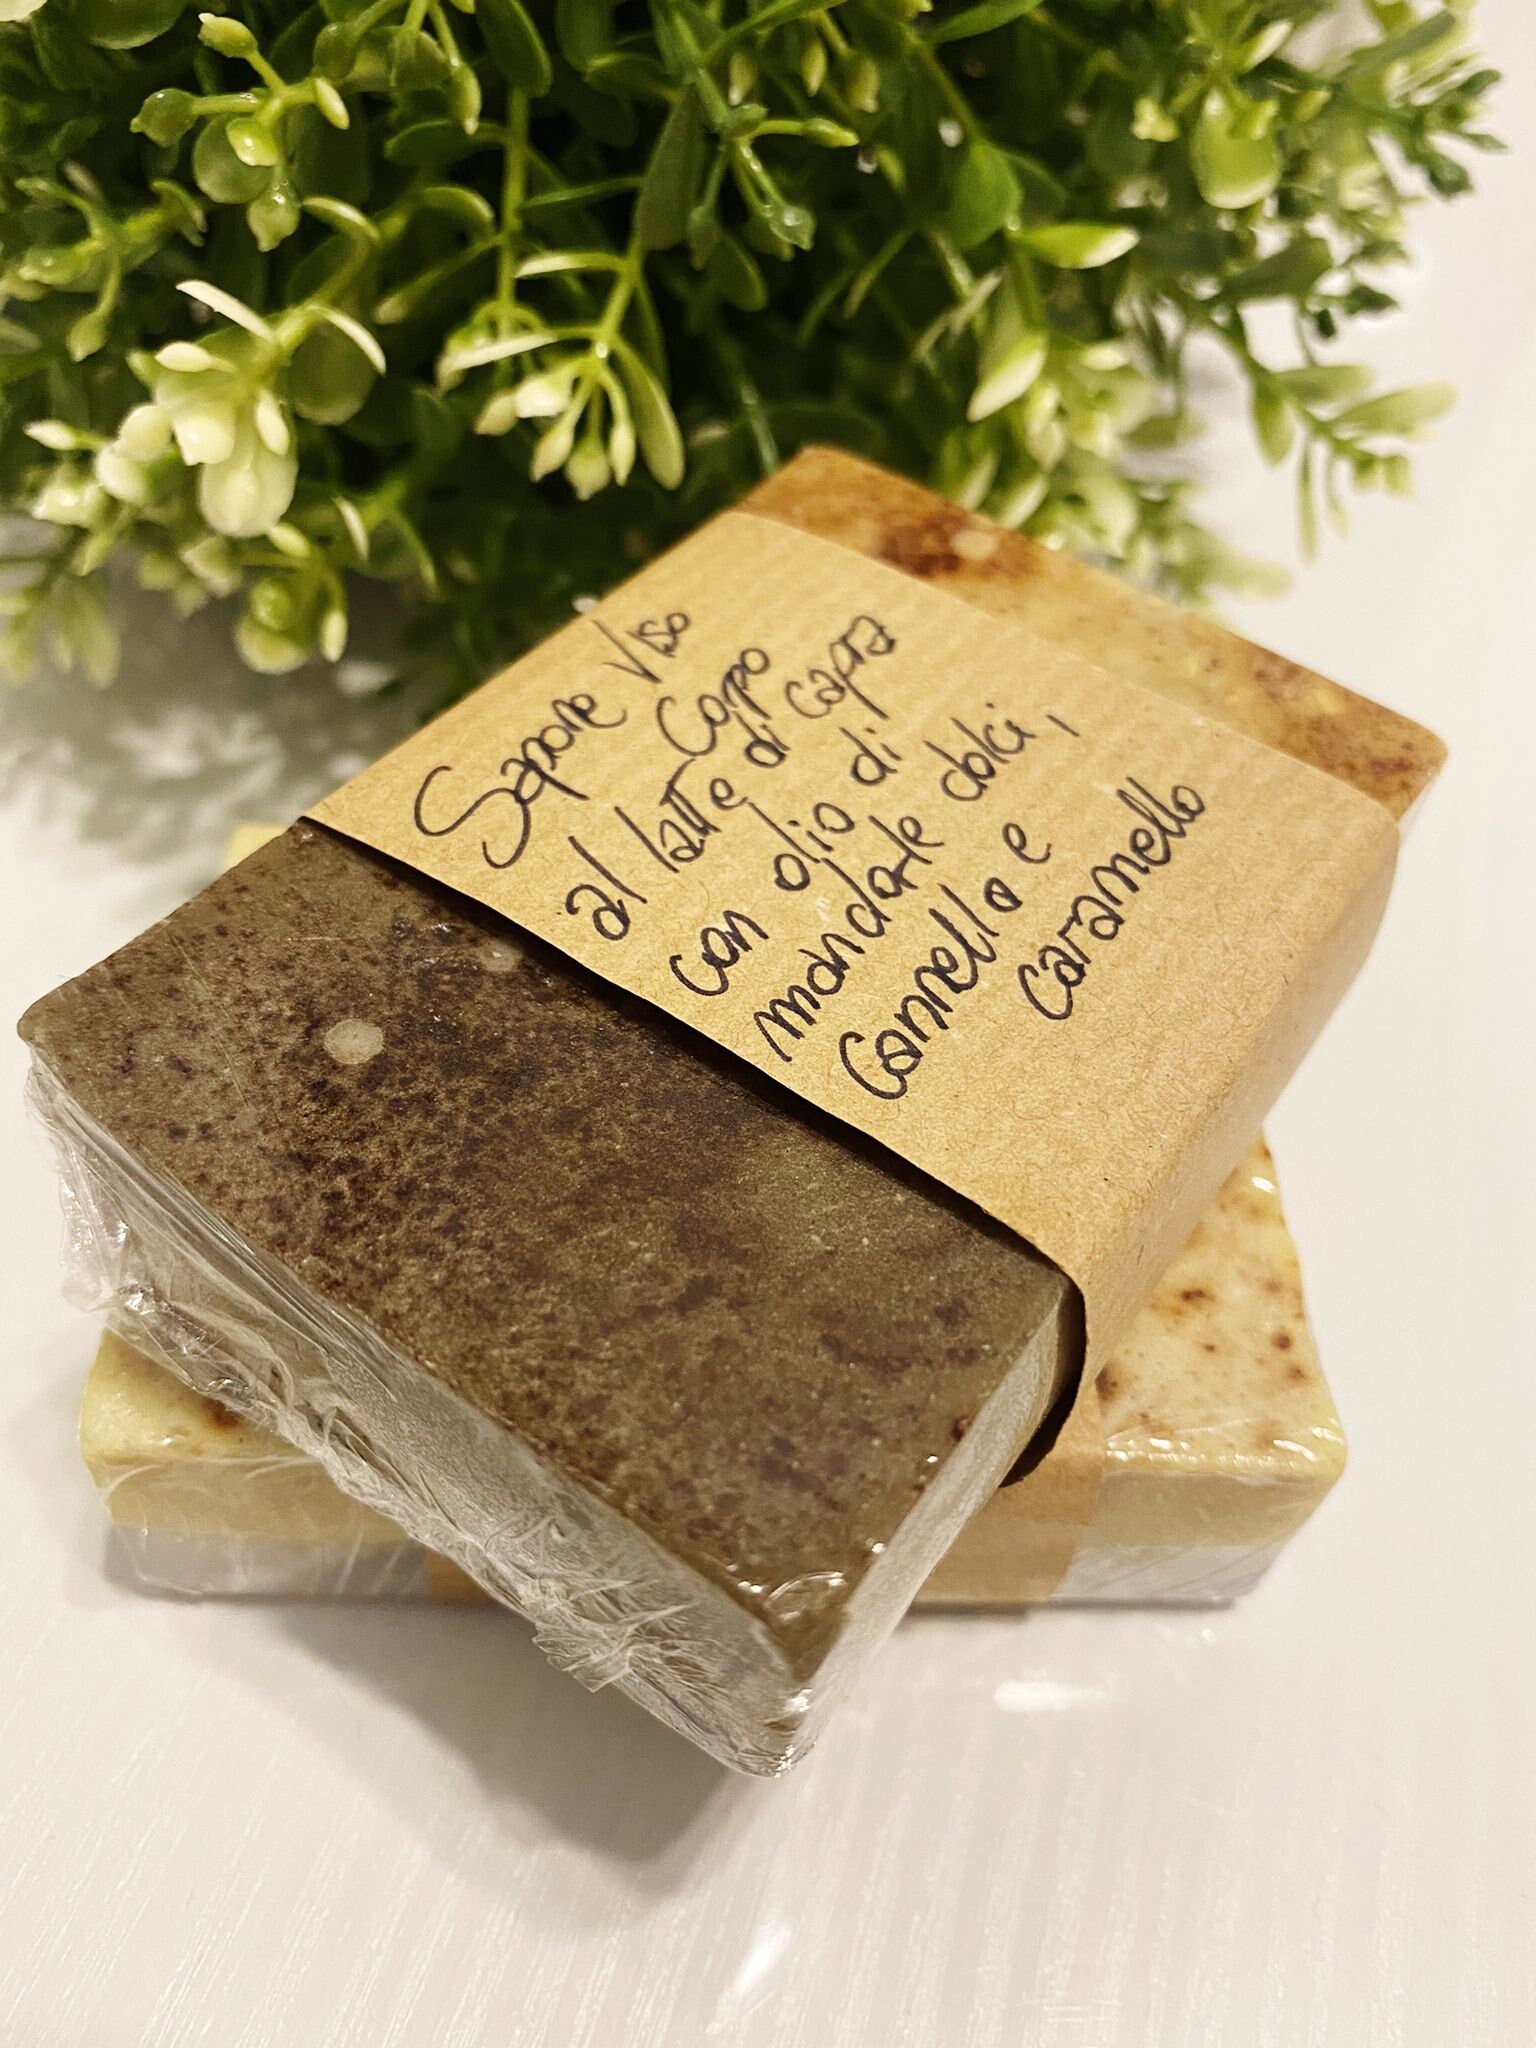 Sapone Viso
Corpo
al latte di capra
con olio di
mandorle dolci,
Cannella e
caramello